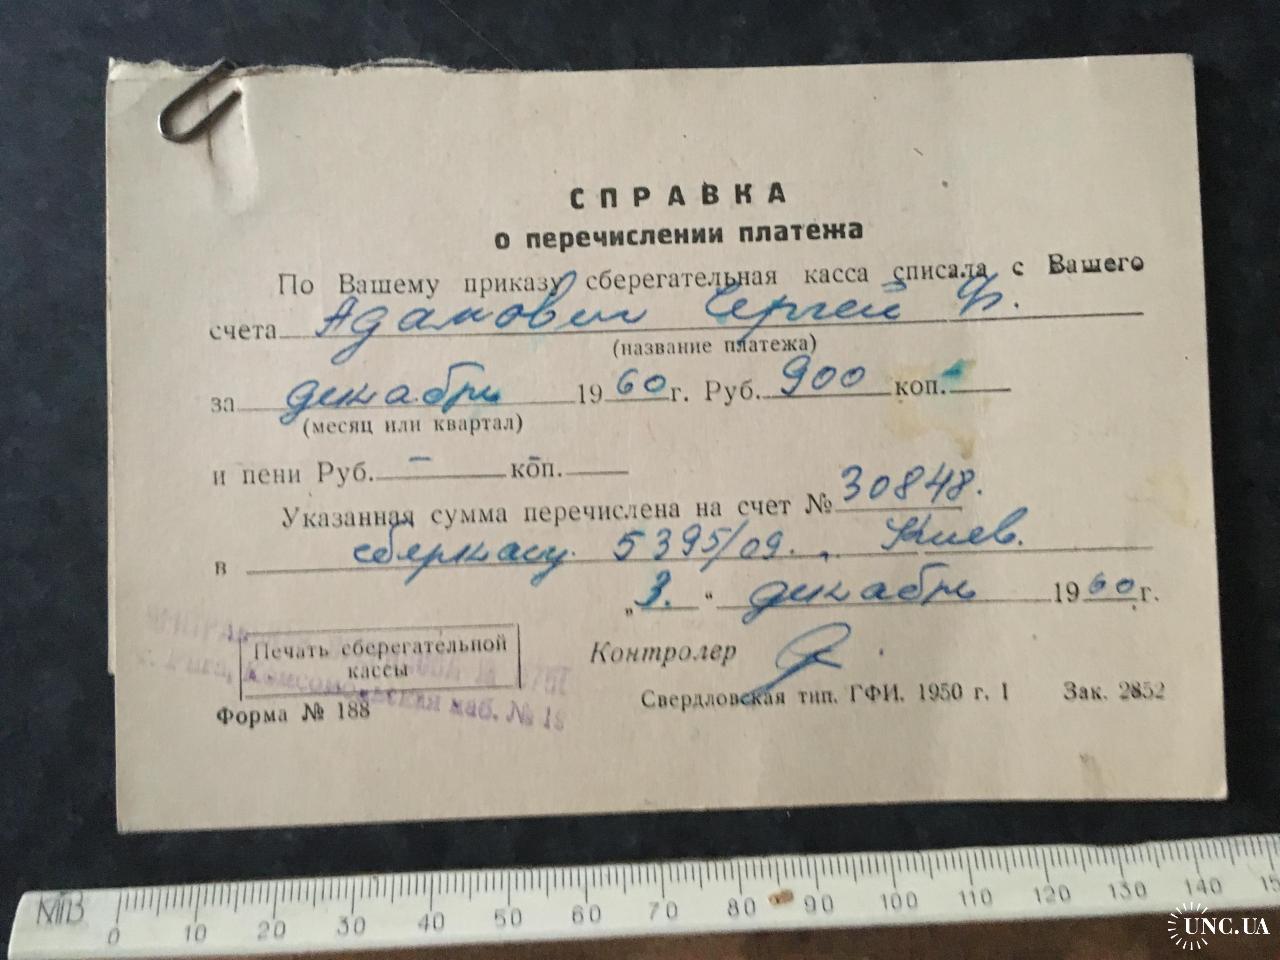 СПРАВКА
о перечислении платежа
По Вашему приказу сберегательная касса списала с Вашего
счета Адамович Сергей Ф.
(название платежа)
за декабрь 1960 г. Руб. 900 коп. -
(месяц или квартал)
и пени Руб. - коп. -
Указанная сумма перечислена на счет № 30848.
в сберкассу 5395/09. Киев.
„3.“ декабрь 1960 г.
Печать сберегательной
кассы
Контролер
г. Рига, Комсомольская наб. №
Форма № 188
Свердловская тип. ГФИ. 1950 г. I Зак. 2852
МПЗ
0 10 20 30 40 50 60 70 80 90 100 110 120 130 140
UNC.UA